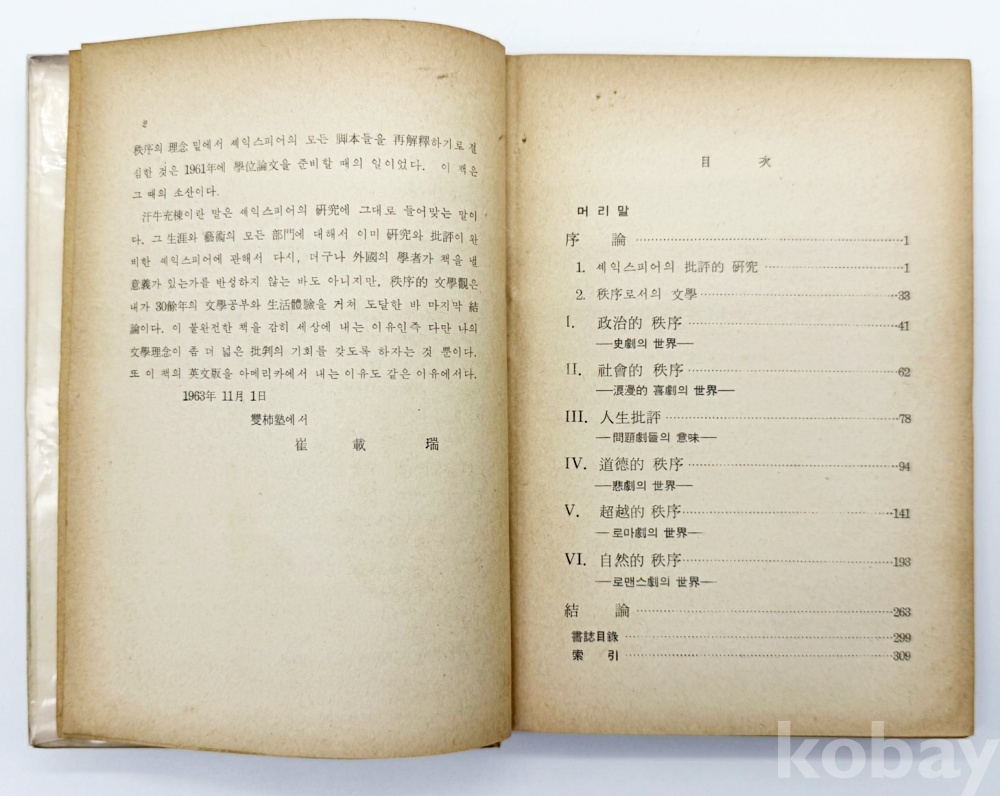 2
秩序의 理念 밑에서 셰익스피어의 모든 脚本들을 再解釋하기로 결
심한 것은 1961年에 學位論文을 준비할 때의 일이었다. 이 책은
그 때의 소산이다.
汗牛充棟이란 말은 셰익스피어의 硏究에 그대로 들어맞는 말이
다. 그 生涯와 藝術의 모든 部門에 대해서 이미 硏究와 批評이 완
비한 셰익스피어에 관해서 다시, 더구나 外國의 學者가 책을 낼
意義가 있는가를 반성하지 않는 바도 아니지만, 秩序的 文學觀은
내가 30餘年의 文學공부와 生活體驗을 거쳐 도달한 바 마지막 結
論이다. 이 불완전한 책을 감히 세상에 내는 이유인즉 다만 나의
文學理念이 좀 더 넓은 批判의 기회를 갖도록 하자는 것 뿐이다.
또 이 책의 英文版을 아메리카에서 내는 이유도 같은 이유에서다.
1963年 11月 1日
雙柿塾에서
崔 載 瑞
目 次
머리말
序 論 1
1. 셰익스피어의 批評的 硏究 1
2. 秩序로서의 文學 33
I. 政治的 秩序 41
—史劇의 世界—
II. 社會的 秩序 62
—浪漫的 喜劇의 世界—
III. 人生批評 78
—問題劇들의 意味—
IV. 道德的 秩序 94
—悲劇의 世界—
V. 超越的 秩序 141
—로마劇의 世界—
VI. 自然的 秩序 193
—로맨스劇의 世界—
結 論 263
書誌目錄 299
索 引 309
kobay